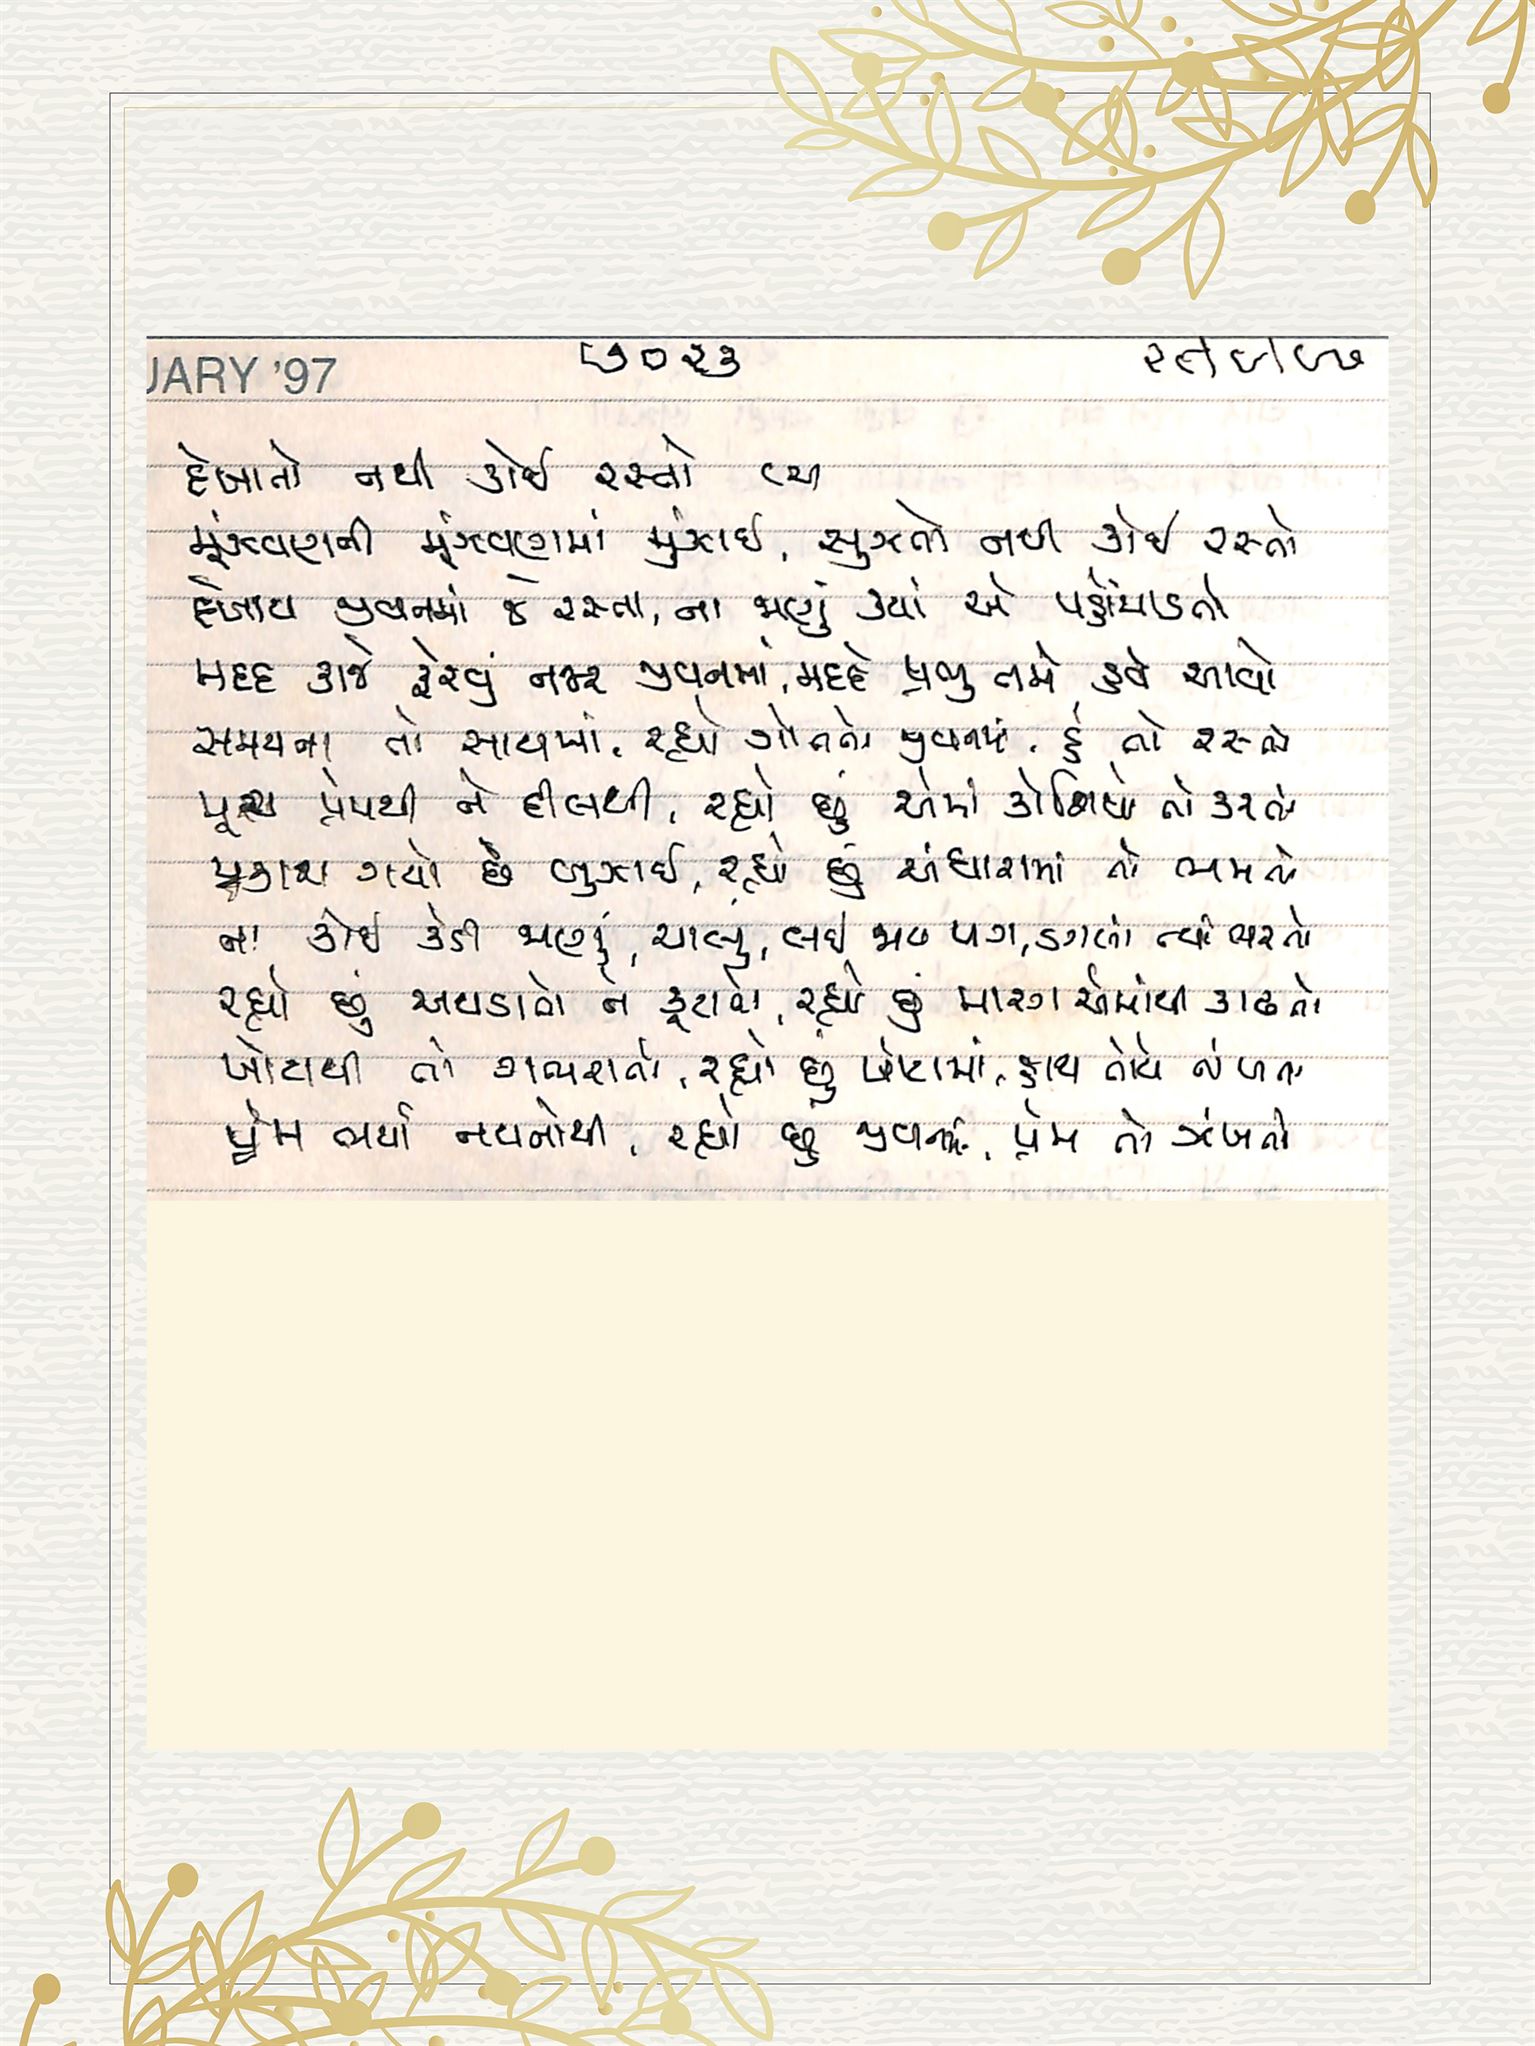 UARY '97 ૭૦૨૩
દેખાતો નથી કોઈ રસ્તો
મૂંઝવણની મૂંઝવણમાં મુંઝાઈ, સુઝતો નથી કોઈ રસ્તો
દેખાય જીવનમાં જે રસ્તા, ના જાણું ક્યાં એ પહોંચાડતો
મદદ કાજે ફેરવું નજર જીવનમાં, મદદે પ્રભુ તમે હવે આવો
સમયના તો સાથમાં, રહ્યો ગોતતો જીવનમાં, હું તો રસ્તો
પૂરા પ્રેમથી ને દીલથી, રહ્યો છું એમાં કોશિષો તો કરતો
પ્રકાશ ગયો છે બુઝાઈ, રહ્યો છું અંધારામાં તો ભમતો
ના કોઈ કેડી જાણું, ચાલું, લઈ જાય પગ, ડગલાં ત્યાં ભરતો
રહ્યો છું અથડાતો ને કૂટાતો, રહ્યો છું મારગ એમાંથી કાઢતો
ખોટાથી તો ગભરાતો, રહ્યો છું ખોટામાં, હાથ તોયે
પ્રેમ ભર્યા નયનોથી, રહ્યો છું જીવનમાં, પ્રેમ તો ઝંખતો